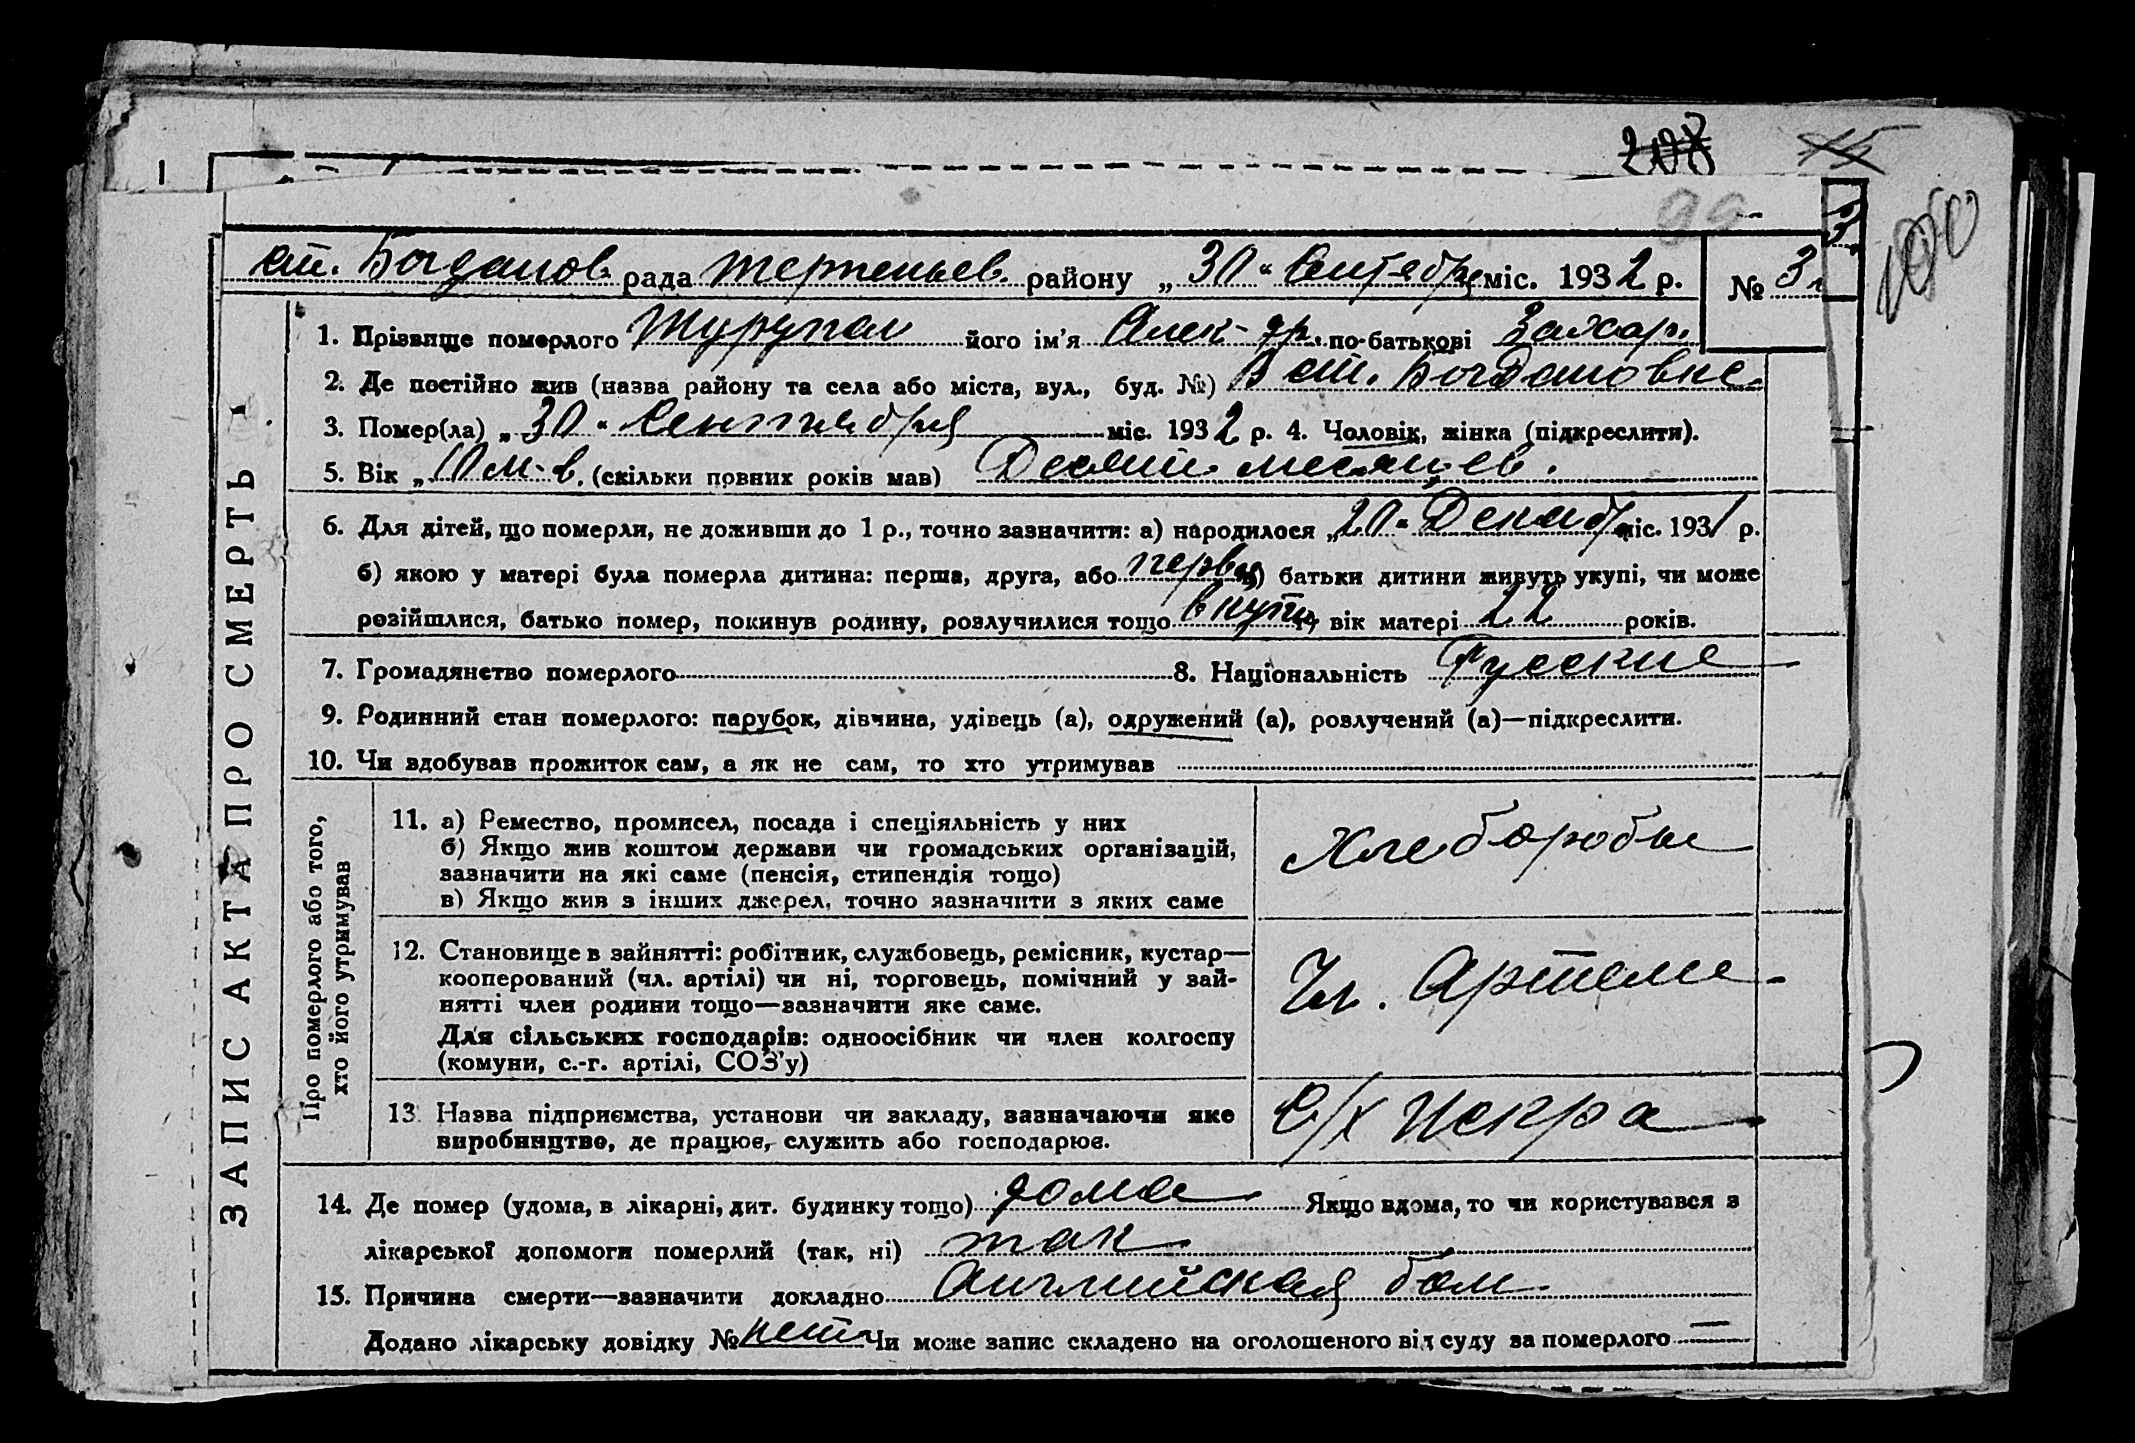 208 15
99
100
ст. Богданов. рада Терпеньев. району „30“ Сентября міс. 1932 р. № 3
ЗАПИС АКТА ПРО СМЕРТЬ
1. Прізвище померлого його ім'я Алек-др. по-батькові Захар.
2. Де постійно жив (назва району та села або міста, вул., буд. №) В ст. Богдановке
3. Помер(ла) „30“ Сентября міс. 1932 р. 4. Чоловік, жінка (підкреслити).
5. Вік „10 м-в. (скільки повних років мав) Десять месяцев.
6. Для дітей, що померли, не доживши до 1 р., точно зазначити: а) народилося „20“ Декаб міс. 1931 р.
б) якою у матері була померла дитина: перша, друга, або первая в) батьки дитини живуть укупі, чи може
розійшлися, батько помер, покинув родину, розлучилися тощо вкупе г) вік матері 22 років.
7. Громадянство померлого 8. Національність Русские
9. Родинний стан померлого: парубок, дівчина, удівець (а), одружений (а), розлучений (а)—підкреслити.
10. Чи здобував прожиток сам, а як не сам, то хто утримував
Про померлого або того,
хто його утримував
11. а) Ремество, промисел, посада і спеціяльність у них
б) Якщо жив коштом держави чи громадських організацій,
зазначити на які саме (пенсія, стипендія тощо)
в) Якщо жив з інших джерел, точно зазначити з яких саме
Хлеборобы
12. Становище в зайнятті: робітник, службовець, ремісник, кустар—
кооперований (чл. артілі) чи ні, торговець, помічний у зай-
нятті член родини тощо—зазначити яке саме.
Для сільських господарів: одноосібник чи член колгоспу
(комуни, с.-г. артілі, СОЗ'у)
Чл. Артели
13 Назва підприємства, установи чи закладу, зазначаючи яке
виробництво, де працює, служить або господарює.
С/х Искра
14. Де помер (удома, в лікарні, дит. будинку тощо) дома Якщо вдома, то чи користувався з
лікарської допомоги померлий (так, ні) так
15. Причина смерти—зазначити докладно Английская бол.
Додано лікарську довідку № нет Чи може запис складено на оголошеного від суду за померлого —